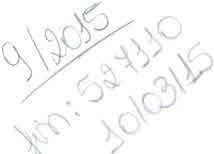 9/2015
527110
10/03/15